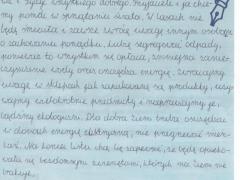 nie i życzę wszystkiego dobrego. Przyjaciele i ja chce-
my pomóc w sprzątaniu świata. W lasach nie
będę śmieciła i zawsze zwrócę uwagę innym osobom
o zachowaniu porządku. Lubię segregować odpady,
ponieważ to wszystkim się opłaca, zmniejsza zanie-
czyszczenie wody oraz oszczędza energię. Zwracajmy
uwagę w sklepach jak zapakowane są produkty, uży-
wajmy wielokrotnie przedmioty i naprawiajmy je,
bądźmy ekologiczni. Dla dobra Ziemi trzeba oszczędzać
w domach energię elektryczną, nie przegrzewać miesz-
kań. Na koniec listu chcę Cię zapewnić, że będę opieko-
wała się bezdomnymi zwierzętami, których na Ziemi nie
brakuje.